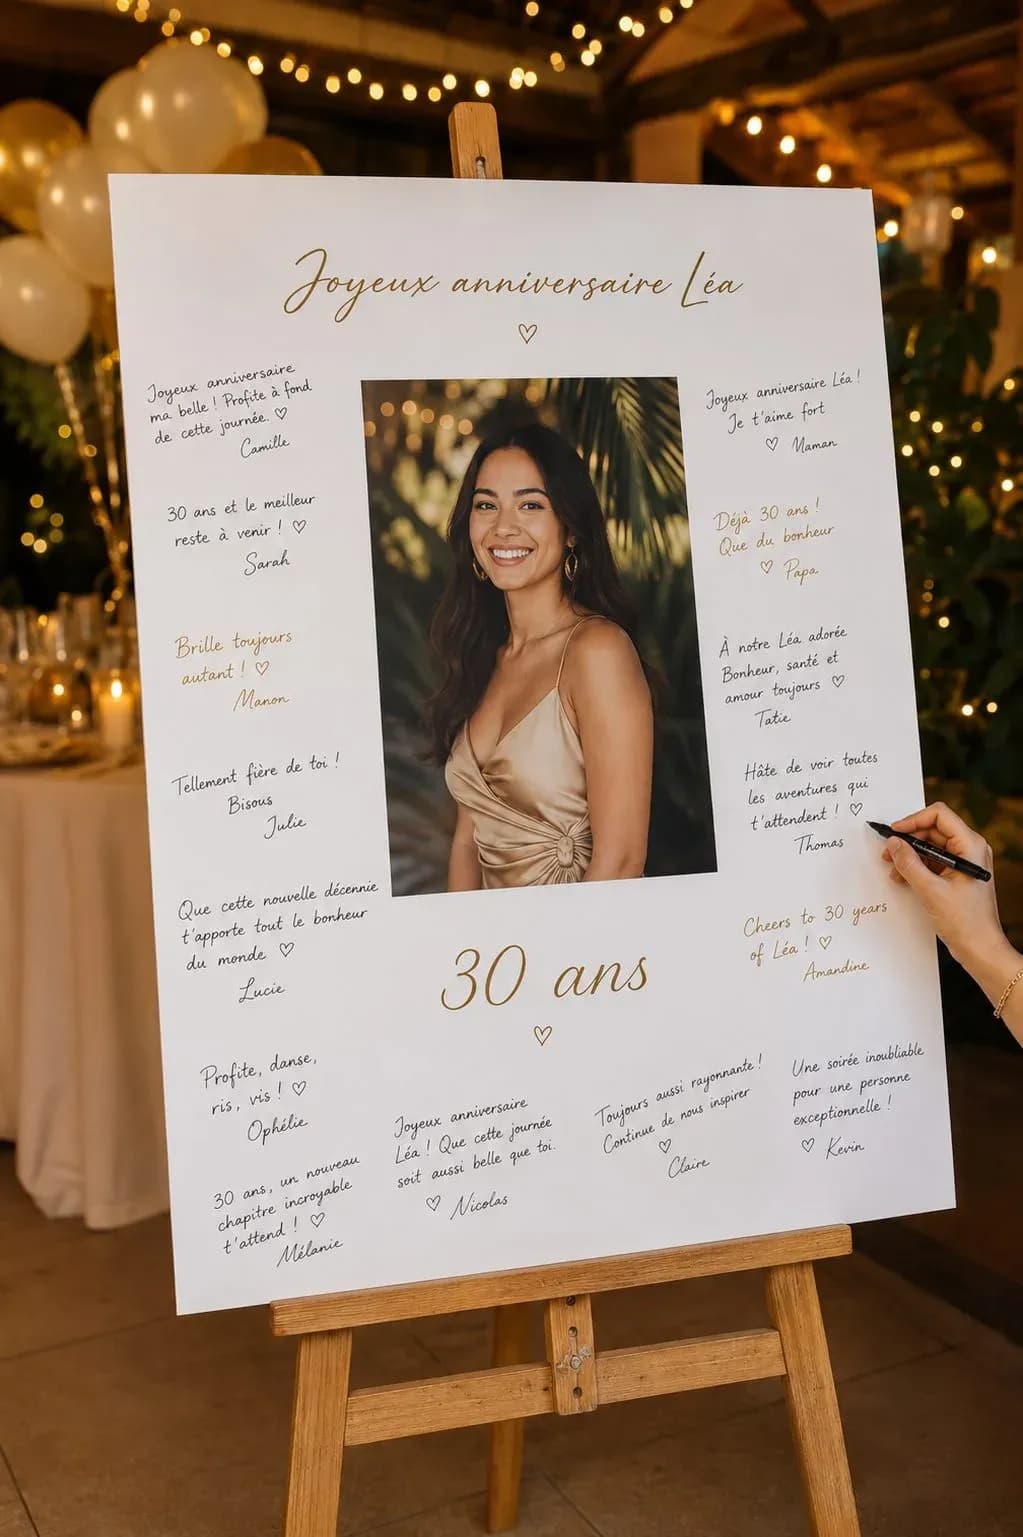 Joyeux anniversaire Léa
Joyeux anniversaire
ma belle ! Profite à fond
de cette journée. ♡
Camille
30 ans et le meilleur
reste à venir ! ♡
Sarah
Brille toujours
autant ! ♡
Manon
Tellement fière de toi !
Bisous
Julie
Que cette nouvelle décennie
t'apporte tout le bonheur
du monde ♡
Lucie
Profite, danse,
ris, vis ! ♡
Ophélie
30 ans, un nouveau
chapitre incroyable
t'attend ! ♡
Mélanie
Joyeux anniversaire Léa !
Je t'aime fort
♡ Maman
Déjà 30 ans !
Que du bonheur
♡ Papa
À notre Léa adorée
Bonheur, santé et
amour toujours ♡
Tatie
Hâte de voir toutes
les aventures qui
t'attendent ! ♡
Thomas
Cheers to 30 years
of Léa ! ♡
Amandine
30 ans
Joyeux anniversaire
Léa ! Que cette journée
soit aussi belle que toi.
♡ Nicolas
Toujours aussi rayonnante !
Continue de nous inspirer
♡
Claire
Une soirée inoubliable
pour une personne
exceptionnelle !
♡ Kevin